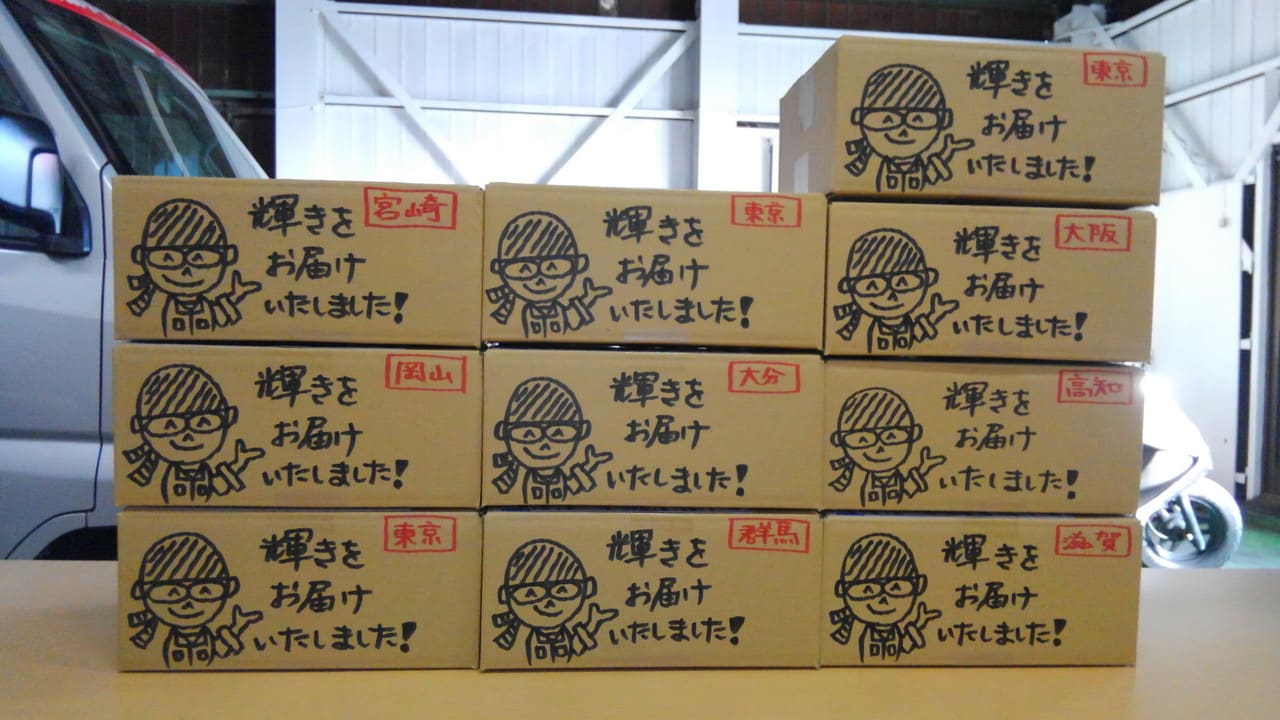 東京
輝きを
お届け
いたしました!
宮崎
輝きを
お届け
いたしました!
東京
輝きを
お届け
いたしました!
大阪
輝きを
お届け
いたしました!
岡山
輝きを
お届け
いたしました!
大分
輝きを
お届け
いたしました!
高知
輝きを
お届け
いたしました!
東京
輝きを
お届け
いたしました!
群馬
輝きを
お届け
いたしました!
滋賀
輝きを
お届け
いたしました!